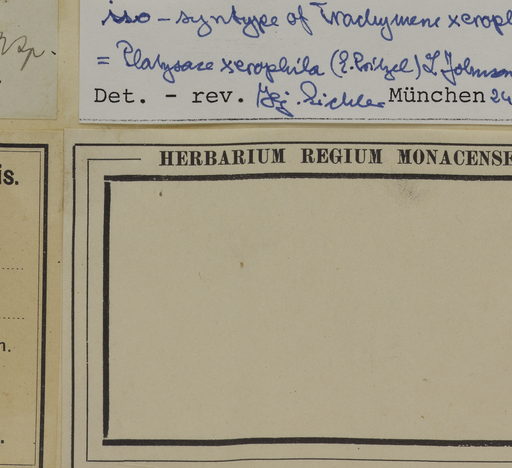 iso-syntype of Trachymene xeroph
= Platysace xerophila (E. Pritzel) L. Johnson
sp.
Det. - rev. Hj. Eichler München 24
is.
HERBARIUM REGIUM MONACENSE
n.